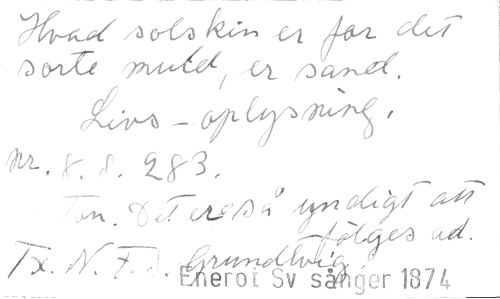 Hvad solskin er for det
sorte muld, er sand.
Livs-oplysning.
nr. 8. s. 283.
Ton. Det er så yndigt att
følges ad.
Tx. N. F. S. Grundtvig.
Eneroi Sv sånger 1874